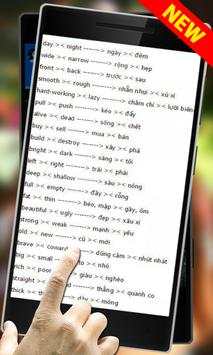 NEW
day >< night --------> ngày >< đêm
wide >< narrow --------> rộng >< hẹp
front >< back --------> trước >< sau
smooth >< rough --------> nhẵn nhụi >< xù xì
hard-working >< lazy --------> chăm chỉ >< lười biến
pull >< push --------> kéo >< đẩy
alive >< dead --------> sống >< chết
buy >< sell --------> mua >< bán
build >< destroy --------> xây >< phá
bright >< dark --------> sáng >< tối
left >< right --------> trái >< phải
deep >< shallow --------> sâu >< nông
full >< empty --------> đầy >< rỗng
fat >< thin --------> béo, mập >< gầy, ốm
beautiful >< ugly --------> đẹp >< xấu xí
strong >< weak --------> mạnh >< yếu
old >< new --------> cũ >< mới
brave >< coward dũng cảm >< nhút nhát
big >< small to >< nhỏ
rich >< poor giàu >< nghèo
straight >< thẳng >< quanh co
thick >< dày >< mỏng